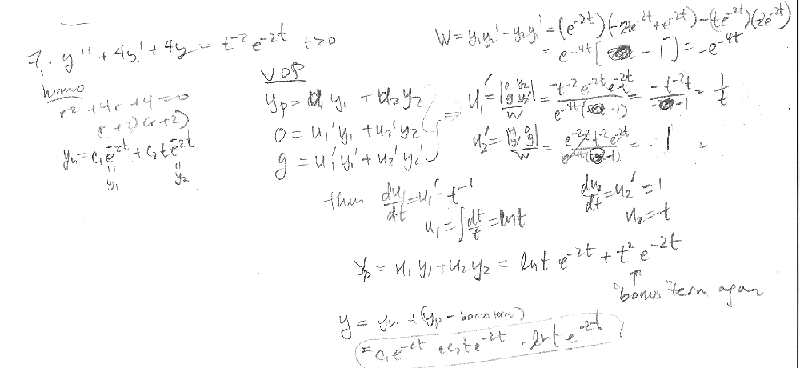 7. y'' + 4y' + 4y = t⁻² e⁻²ᵗ t>0
homo
r² + 4r + 4 = 0
(r+2)(r+2)
yₕ = c₁e⁻²ᵗ + c₂te⁻²ᵗ
y₁ y₂
VOP
yp = u₁y₁ + u₂y₂
0 = u₁'y₁ + u₂'y₂
g = u₁'y₁' + u₂'y₂'
W = y₁y₂' - y₂y₁' = (e⁻²ᵗ)(-2te⁻²ᵗ + e⁻²ᵗ) - (te⁻²ᵗ)(2e⁻²ᵗ)
= e⁻⁴ᵗ[ - 1] = -e⁻⁴ᵗ
⇒ u₁' = |0 y₂ g y₂'| / W = = 1/t
u₂' = |y₁ 0 y₁' g| / W = = 1
thus du₁/dt = u₁' = t⁻¹
u₁ = ∫dt/t = ln t
du₂/dt = u₂' = 1
u₂ = t
yp = u₁y₁ + u₂y₂ = ln t e⁻²ᵗ + t² e⁻²ᵗ
"bonus" term again
y = yₕ + (yp - bonus term)
= c₁e⁻²ᵗ + c₂te⁻²ᵗ - ln t e⁻²ᵗ